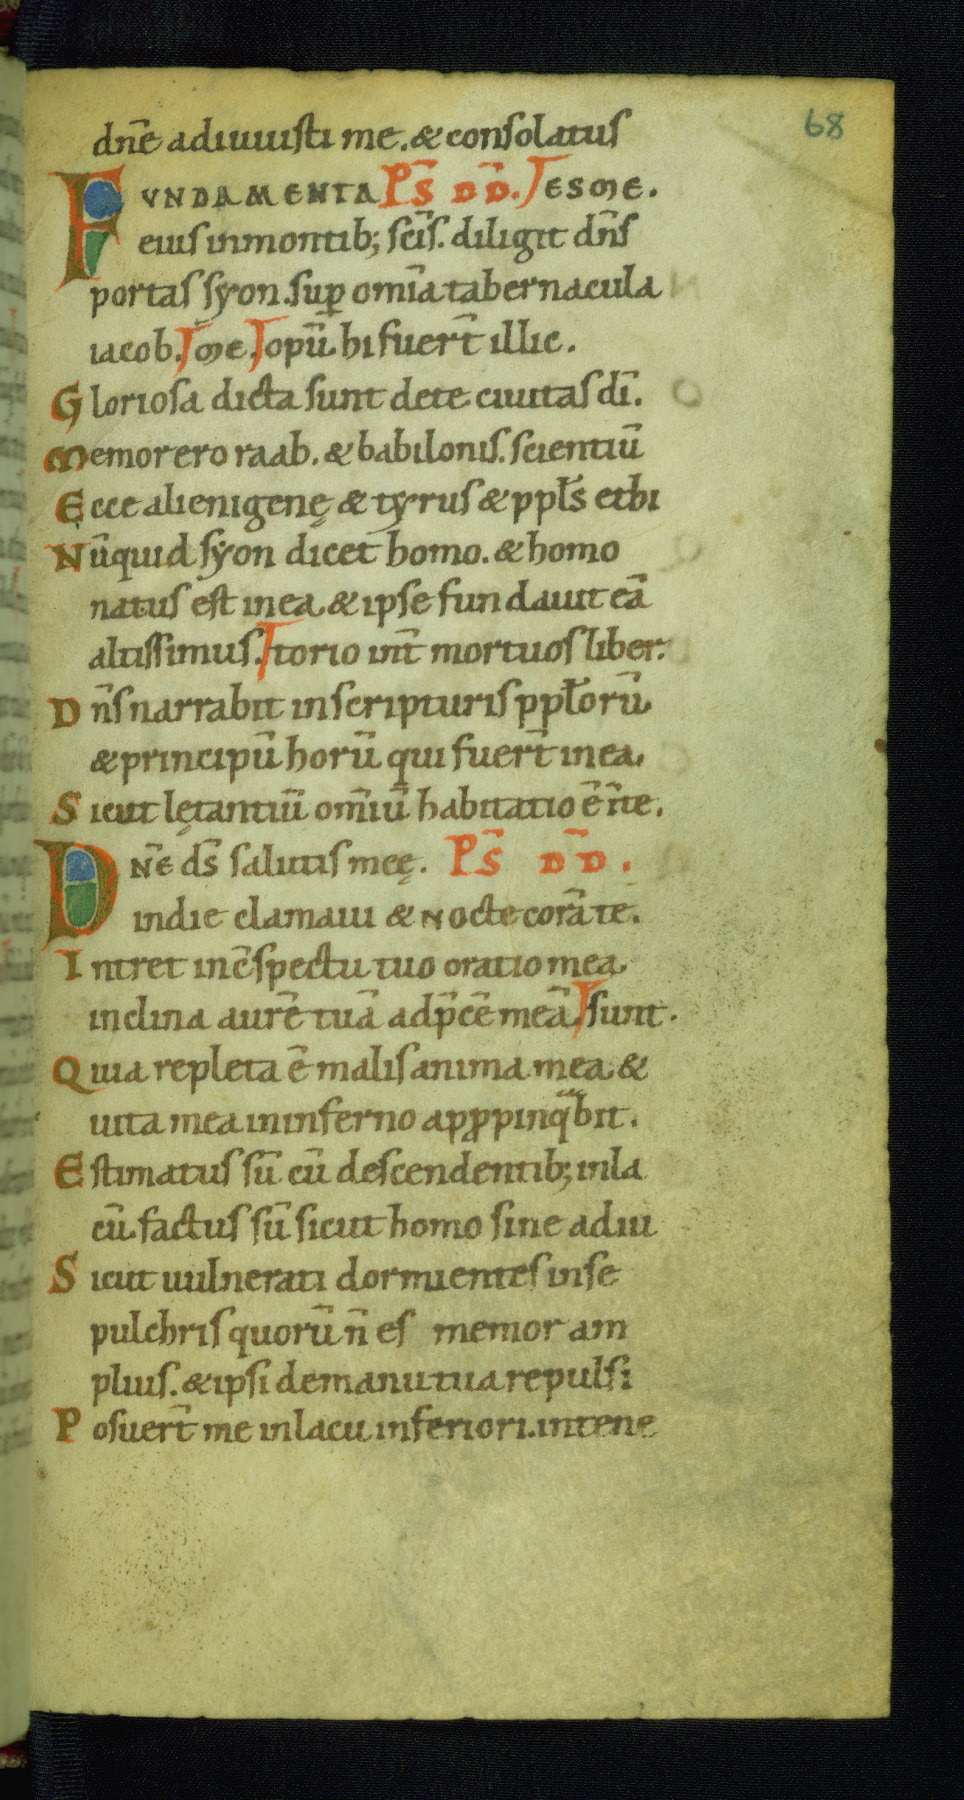 68
dn̄e adiuuisti me. & consolatus
FVNDAMENTA PS̄ DD̄. es me.
eius in montib; sc̄is. diligit dn̄s
portas syon. sup̱ omīa tabernacula
iacob. me. opū. hi fuer̄t illic.
Gloriosa dicta sunt de te ciuitas dī.
Memor ero raab. & babilonis. scientiū
Ecce alienigenę & tyrus & ppl̄s ethi
Nūquid syon dicet homo. & homo
natus est in ea & ipse fundauit eā
altissimus. torio int̄ mortuos liber.
Dn̄s narrabit in scripturis ppl̄orū
& principū horū qui fuer̄t in ea.
Sicut lętantiū om̄iū habitatio ē in te.
Dn̄e ds̄ salutis meę. PS̄ DD̄.
in die clamaui & nocte corā te.
Intret in c̄spectu tuo oratio mea
inclina aurē tuā ad p̄cē meā sunt.
Quia repleta ē malis anima mea &
uita mea in inferno ap̱ropinqᵃbit.
Estimatus sū cū descendentib; in la
cū. factus sū sicut homo sine adiu
Sicut uulnerati dormientes in se
pulchris quorū n̄ es memor am
plius. & ipsi de manu tua repulsi
Posuer̄t me in lacu inferiori. in tene